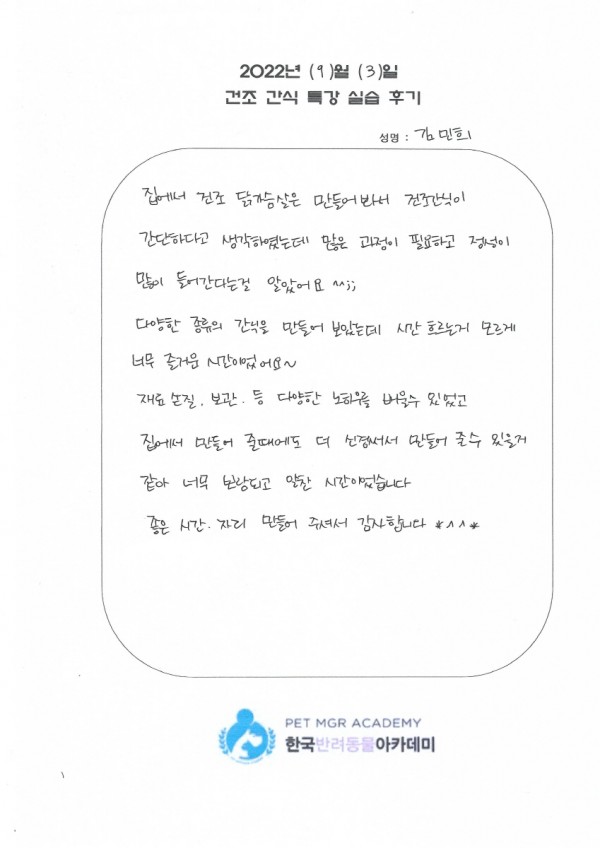 2022년 (9)월 (3)일
건조 간식 특강 실습 후기
성명 : 김민희
집에서 건조 닭가슴살은 만들어봐서 건조간식이
간단하다고 생각하였는데 많은 과정이 필요하고 정성이
많이 들어간다는걸 알았어요 ^^;;
다양한 종류의 간식을 만들어 보았는데 시간 흐르는거 모르게
너무 즐거운 시간이었어요~
재료손질, 보관. 등 다양한 노하우를 배울수 있었고
집에서 만들어 줄때에도 더 신경써서 만들어 줄수 있을거
같아 너무 보람되고 알찬 시간이었습니다
좋은 시간. 자리 만들어 주셔서 감사합니다 *^^*
PET MGR ACADEMY
한국반려동물아카데미